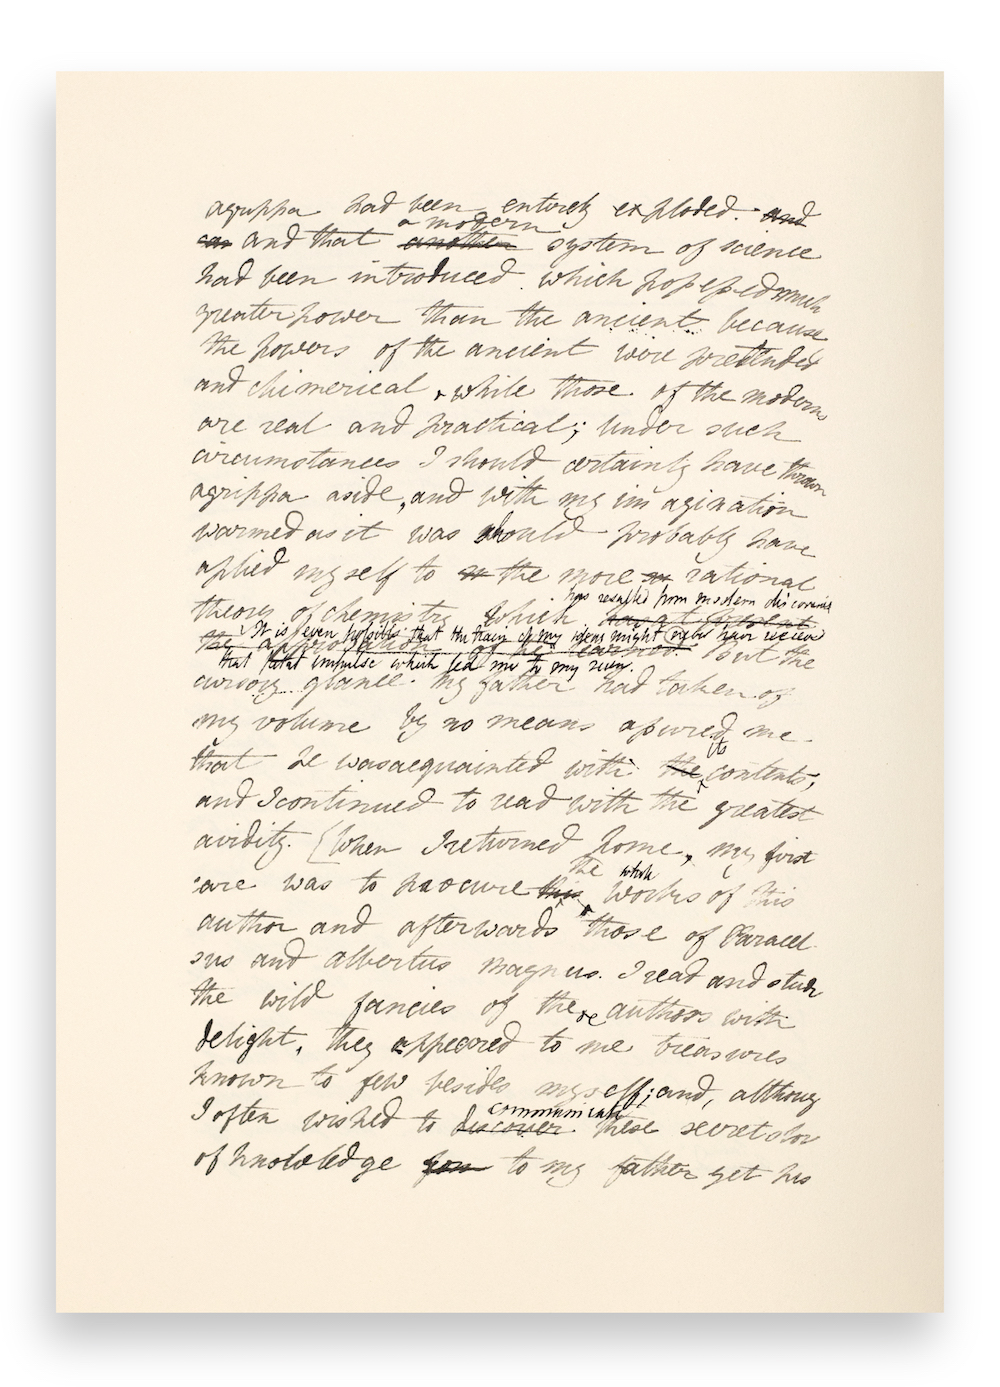 agrippa had been entirely exploded. and
a modern
and that another system of science
had been introduced which possessed much
greater power than the ancient because
the powers of the ancient were pretended
and chimerical, while those of the modern
are real and practical; under such
circumstances I should certainly have thrown
agrippa aside, and with my imagination
warmed as it was should probably have
aplied myself to the more rational
has resulted from modern discoveries
theory of chemistry which
It is even possible that the train of my ideas might never have recieved
the approbation of the learned. But the
that fatal impulse which led me to my ruin.
cursory glance my father had taken of
my volume by no means assured me
that he was acquainted with the contents;
its
and I continued to read with the greatest
avidity. [When I returned home, my first
the whole
care was to procure this works of this
author and afterwards those of Paracel
sus and albertus magnus. I read and studi
the wild fancies of these authors with
delight, they appeared to me treasures
known to few besides myself; and, althoug
communicate
I often wished to discover these secret stor
of knowledge to my father yet his